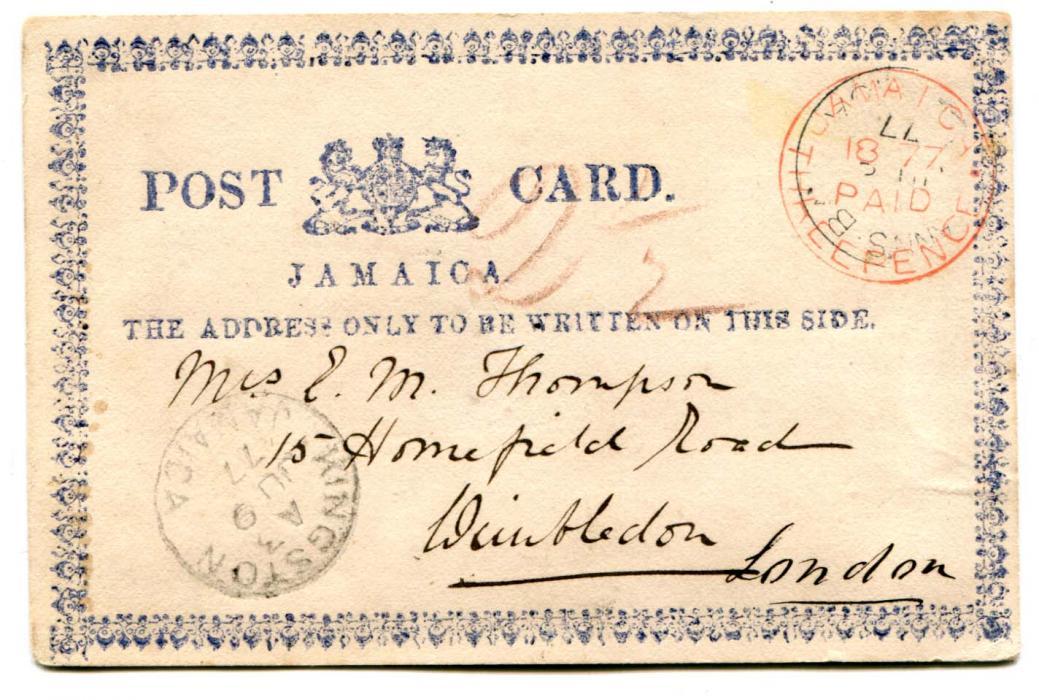 POST CARD.
JAMAICA
THE ADDRESS ONLY TO BE WRITTEN ON THIS SIDE.
JAMAICA
18 77
PAID
PENCE
77
Mrs E. M. Thompson
15 Homefield Road
Wimbledon
London
KINGSTON
JAMAICA
A
JU 9
77